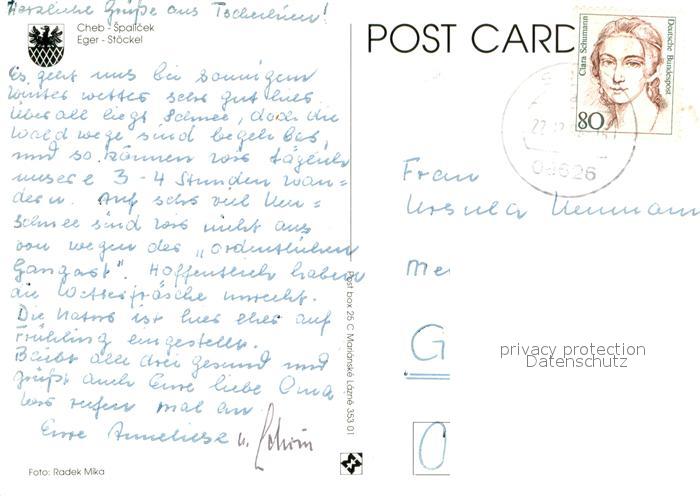 Herzliche Grüße aus Tschechien!
Cheb - Špalíček
Eger - Stöckel
POST CARD
Clara Schumann
Deutsche Bundespost
80
08626
Es geht uns bei sonnigem
Winterwetter sehr gut hier.
Überall liegt Schnee, doch die
Waldwege sind begehbar,
und so können wir täglich
unsere 3-4 Stunden wan=
dern. Auf sehr viel Neu=
schnee sind wir nicht aus
von wegen der "ordentlichen
Gangart". Hoffentlich haben
die Wetterfrösche unrecht.
Die Natur ist hier eher auf
Frühling eingestellt.
Bleibt alle drei gesund und
grüßt auch Eure liebe Oma
Wir rufen mal an
Eure Anneliese u.
Frau
Ursula Neumann
Me
G
privacy protection
Datenschutz
Post box 25 C Mariánské Lázně 353 01
Foto: Radek Mika